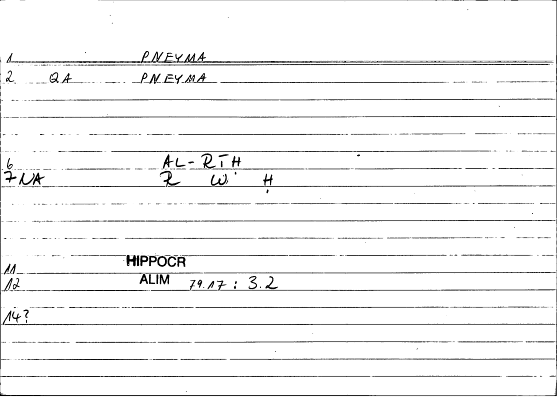 1 PNEYMA
2 QA PNEYMA
6 AL-RTḤ
7 NA R W Ḥ
11 HIPPOCR
12 ALIM 79.17 : 3.2
14?